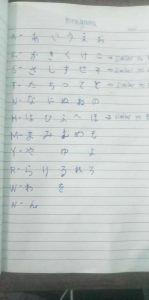 Hiragana
A - あ い う え お
K - か き く け こ
S - さ し す せ そ
T - た ち つ て と
N - な に ぬ ね の
H - は ひ ふ へ ほ
M - ま み む め も
Y - や ゆ よ
R - ら り る れ ろ
W - わ を
N - ん